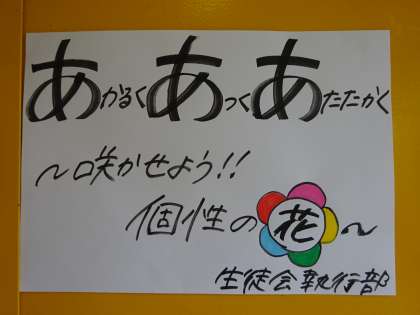 あかるくあつくあたたかく
～咲かせよう!!
個性の花～
生徒会執行部